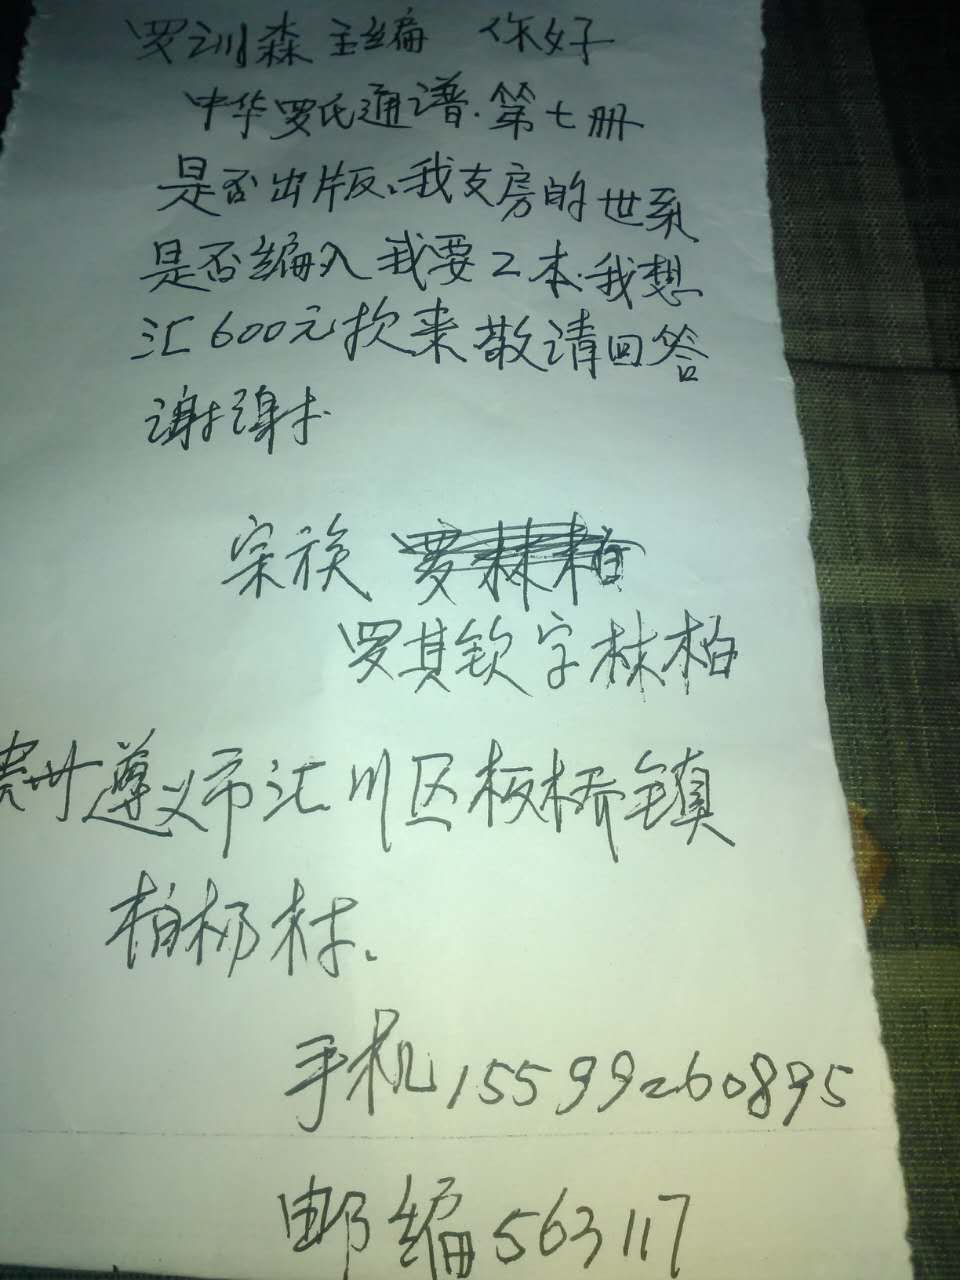 罗训森主编 你好
中华罗氏通谱.第七册
是否出版、我支房的世系
是否编入我要2本.我想
汇600元款来敬请回答
谢谢
宗族
罗其钦字林柏
贵州遵义市汇川区板桥镇
柏杨村.
手机15599260895
邮编563117